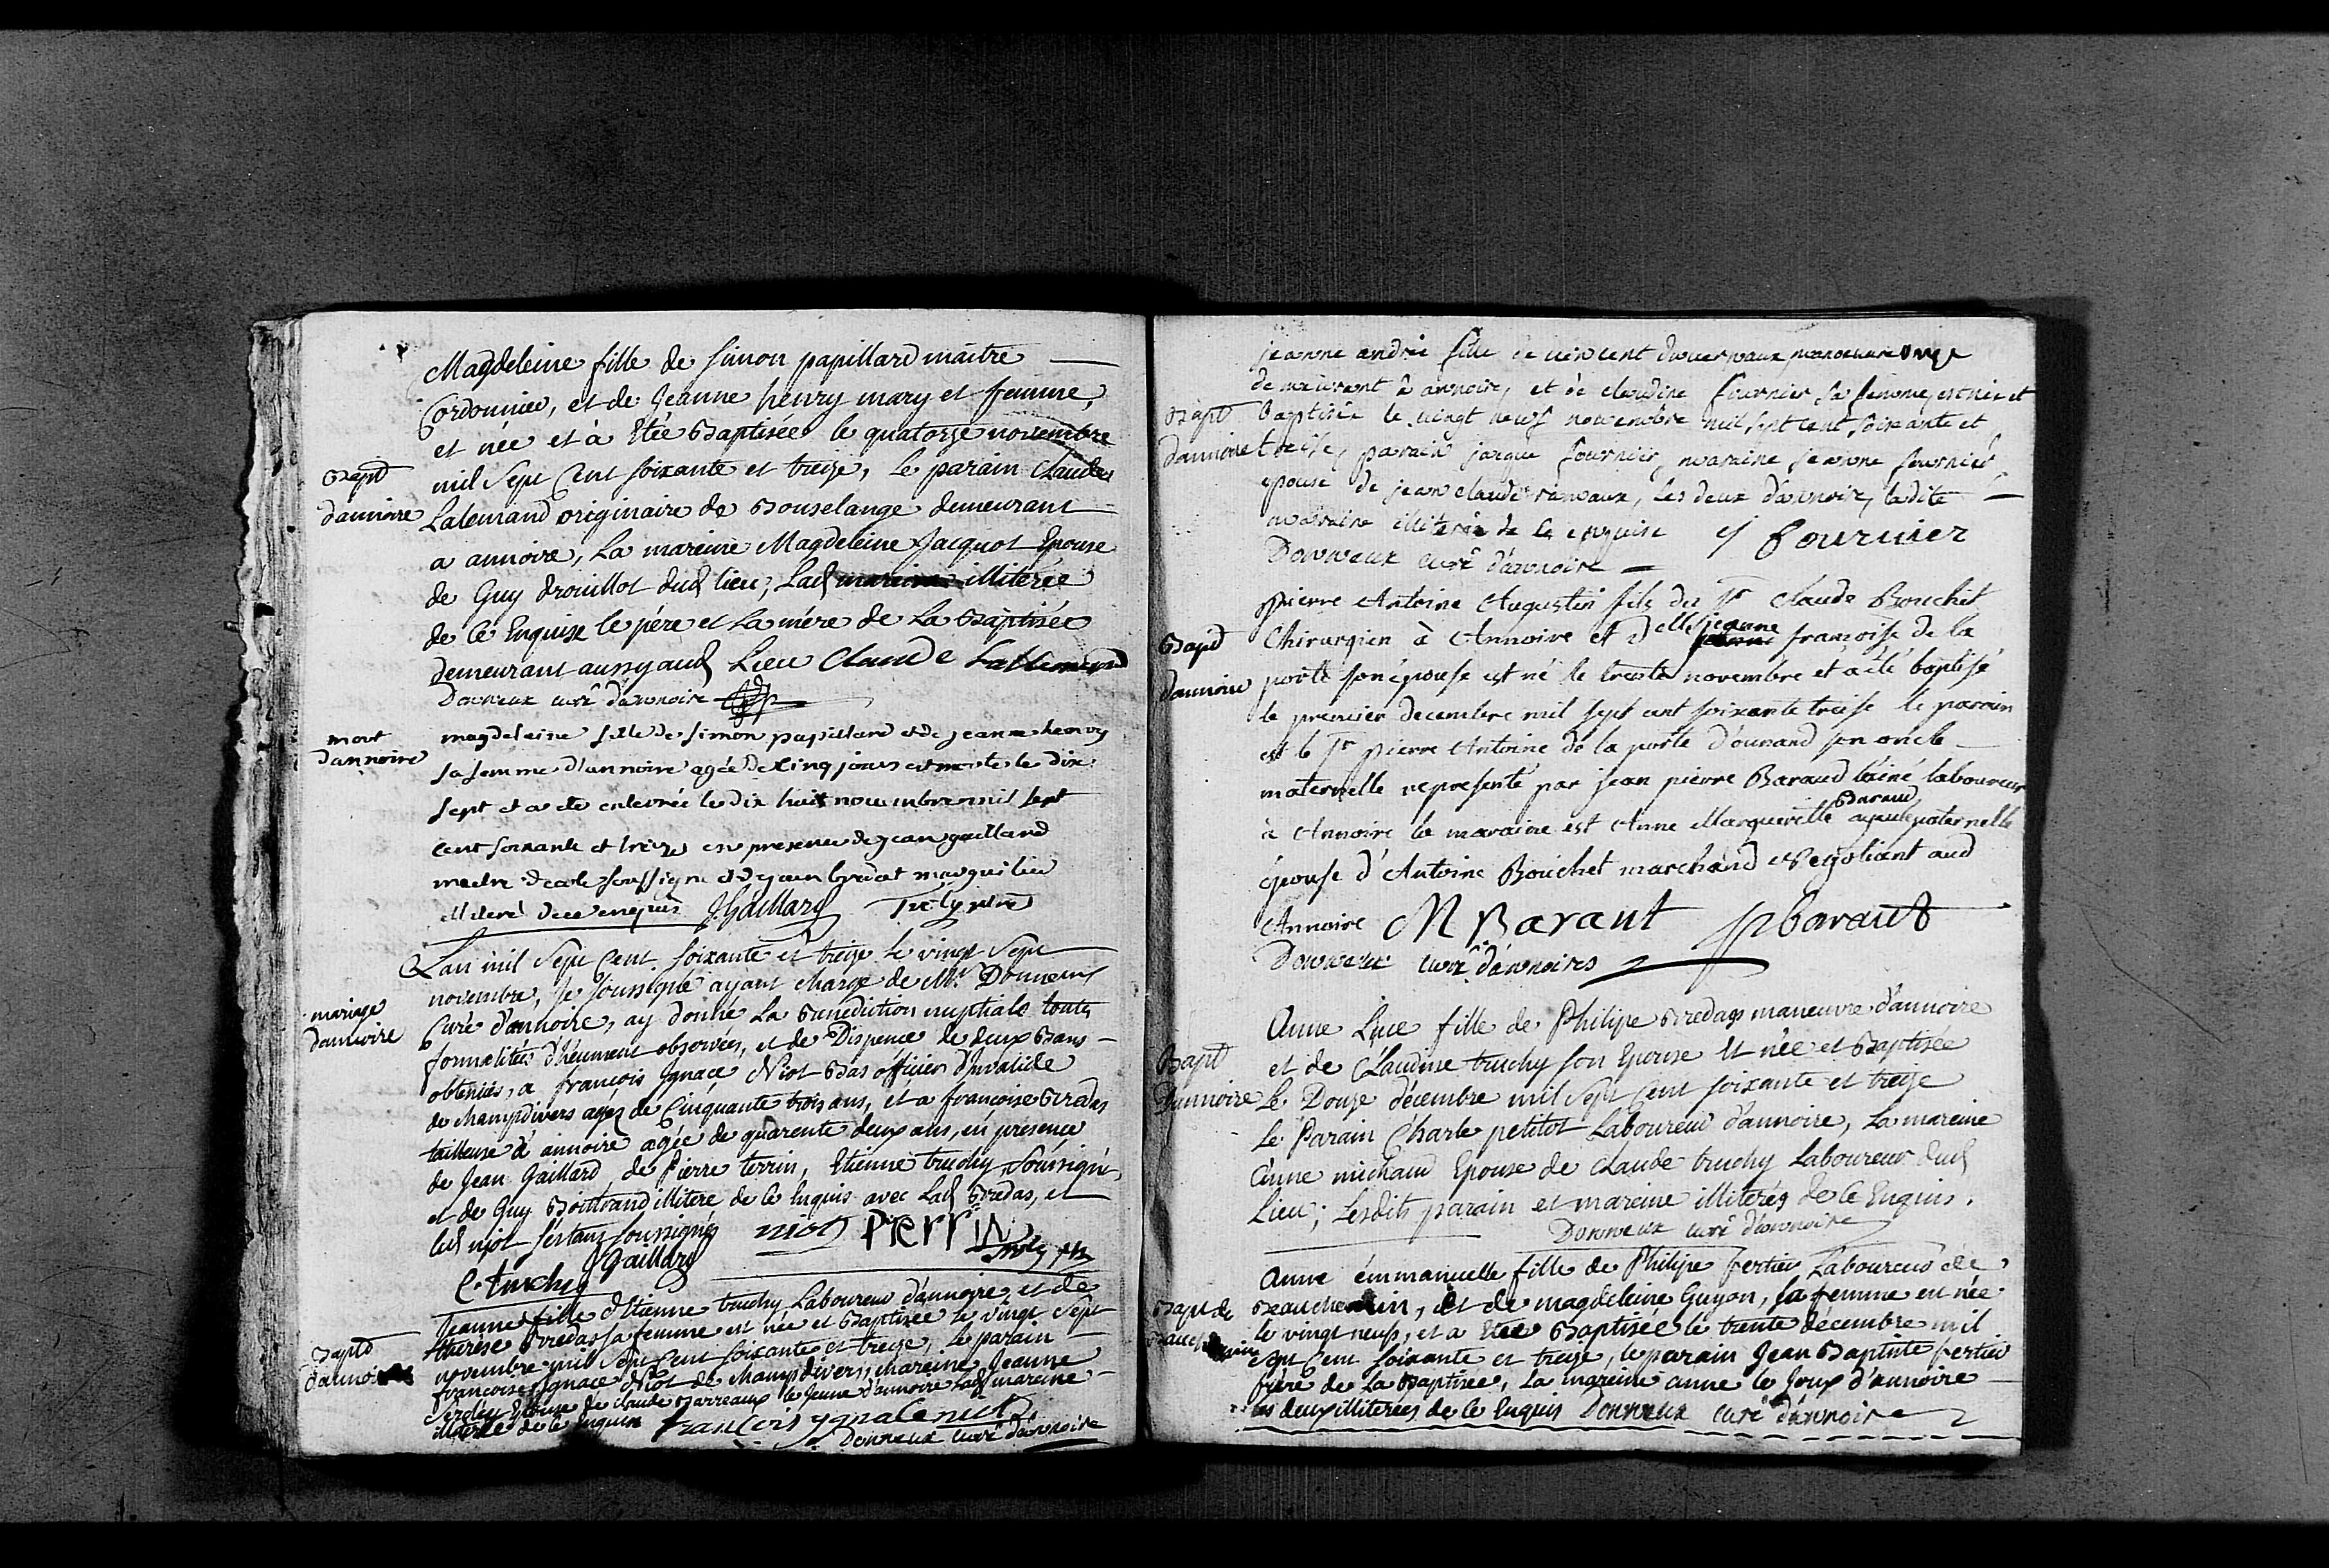 Magdeleine fille de Simon papillard maitre
Cordonnier, et de Jeanne henry mary et femme,
et née et à Etée Baptisée le quatorze novembre
Bapt mil Sept Cent soixante et treize, Le parain Claude
d'annoire Lalemand originaire de Bouselange demeurant
a annoire, La mareine Magdeleine Jacquot Epouse
de Guy drouillot dud lieu, Lad mareine illiterée
de Ce Enquise le pére et La mére de La Baptisée
demeurant aussy aud Lieu Claude Lallemand
Donneux curé d'annoire
mort magdelaine fille de Simon papillard et de jeanne henry
d'annoire sa femme d'annoire agée de Cinq jours est morte le dix
sept et a ete enterrée le dix huit novembre mil sept
cent soixante et treize en presence de jean gaillard
maitre decole soussigné et de jean
illiteré de ce enquis J Gaillard
L'an mil Sept Cent soixante et treize le vingt Sept
novembre, Je soussigné ayant charge de Mr Donneux
mariage Curé d'annoire, ay donné La Benediction nuptiale toutes
d'annoire formalités d'heument observées, et de Dispence de deux Bans
obtenües, a françois Ignace Niot Bas officier d'Invalide
de champdivers agéz de Cinquante trois ans, et a francoise Bredas
tailleuse d'annoire agée de quarente deux ans, en presence
de Jean Gaillard de Pierre terrin, Etienne truchy Soussigné,
et de Guy illiteré de Ce Enquis avec Lad Bredas, et
Led niot s'estant soussignez niot Pierrin
E. truchy J Gaillard
Jeanne fille d'Etienne truchy Laboureur d'annoire, et de
thérése Bredas sa femme est née et Baptisée le vingt Sept
Bapt novembre mil Sept Cent soixante et treize, le parain
d'annoire francoise Ignace Niot de champdivers, mareine Jeanne
Epouse de claude Barreaux le Jeune d'annoire Lad mareine
illiterée de Ce Enquise françois ygnace niot
Donneux curé d'annoire
jeanne andrée fille de vincent duvernaux manoeuvre
demeurant à annoire, et de claudine fournier sa femme, est née et
Bapt baptisée le vingt neuf novembre mil sept cent soixante et
d'annoire treise, parain jacque fournier, maraine jeanne fournier
epouse de jean claude, Les deux d'annoire, ladite
maraine illiterée de ce enquise J fournier
Donneux curé d'annoire
Pierre Antoine Augustin fils du Sr Claude Bouchet
Bapt Chirurgien à Annoire et delle jeanne françoise de la
d'annoire porte son épouse est né le trente novembre et a été baptisé
le premier decembre mil sept cent soixante treise le parain
est le Sr Pierre Antoine de la porte d'ounand son oncle
maternelle representé par jean pierre Baraud l'ainé laboureur
à Annoire la maraine est Anne Margueritte Baraud ayeule paternelle
épouse d'Antoine Bouchet marchand et negotiant aud
Annoire M Barant jp barant
Donneux curé d'annoires
Anne Luce fille de Philipe Bredas maneuvre d'annoire
Bapt et de Claudine truchy son Epouse Et née et Baptisée
D'annoire Le Douze décembre mil Sept Cent soixante et treize
Le Parain Charle petitot Laboureur d'annoire, La mareine
Anne michaud Epouse de Claude truchy Laboureur dud
Lieu; Lesdits parain et mareine illiteréz de Ce Enquis.
Donneux curé d'annoire
Anne émmanuelle fille de Philipe fertier Laboureur de
Bapt de Beauchemin, Et de magdeleine Guyon, sa femme est née
le vingt neufs, et a Etée Baptisée le trente décembre mil
Sept Cent soixante et treize, le parain Jean Baptiste fertier
frere de La Baptisée, La mareine anne le Joux d'annoire
les deux illiterées de Ce Enquis Donneux curé d'annoire